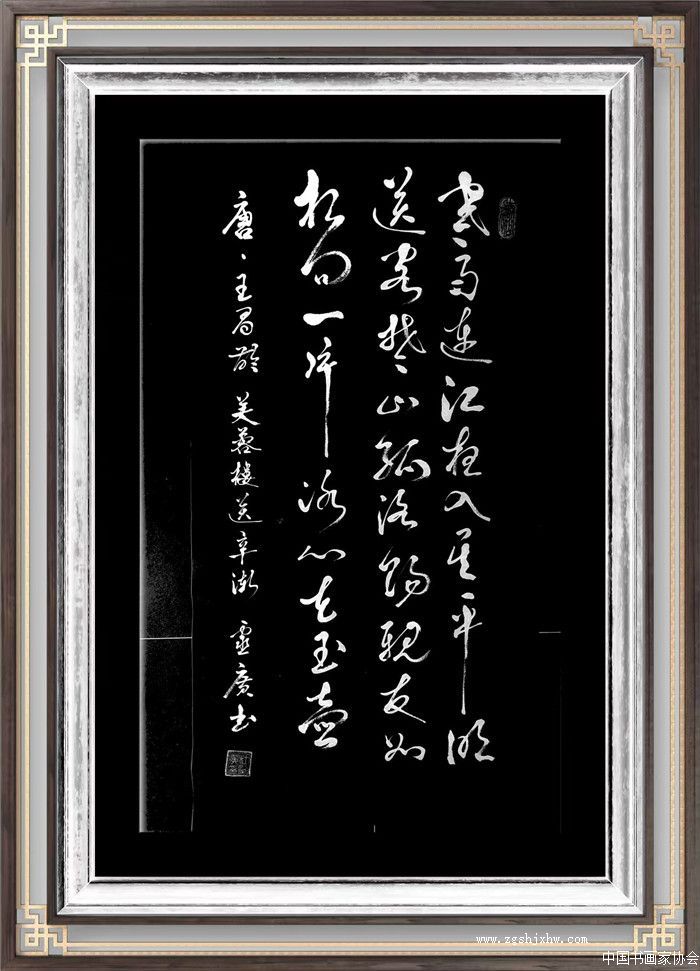 寒雨連江夜入吳平明
送客楚山孤洛陽親友如
相問一片冰心在玉壺
唐、王昌齡 芙蓉樓送辛漸 廣书
www.zgshixhw.com
中国书画家协会